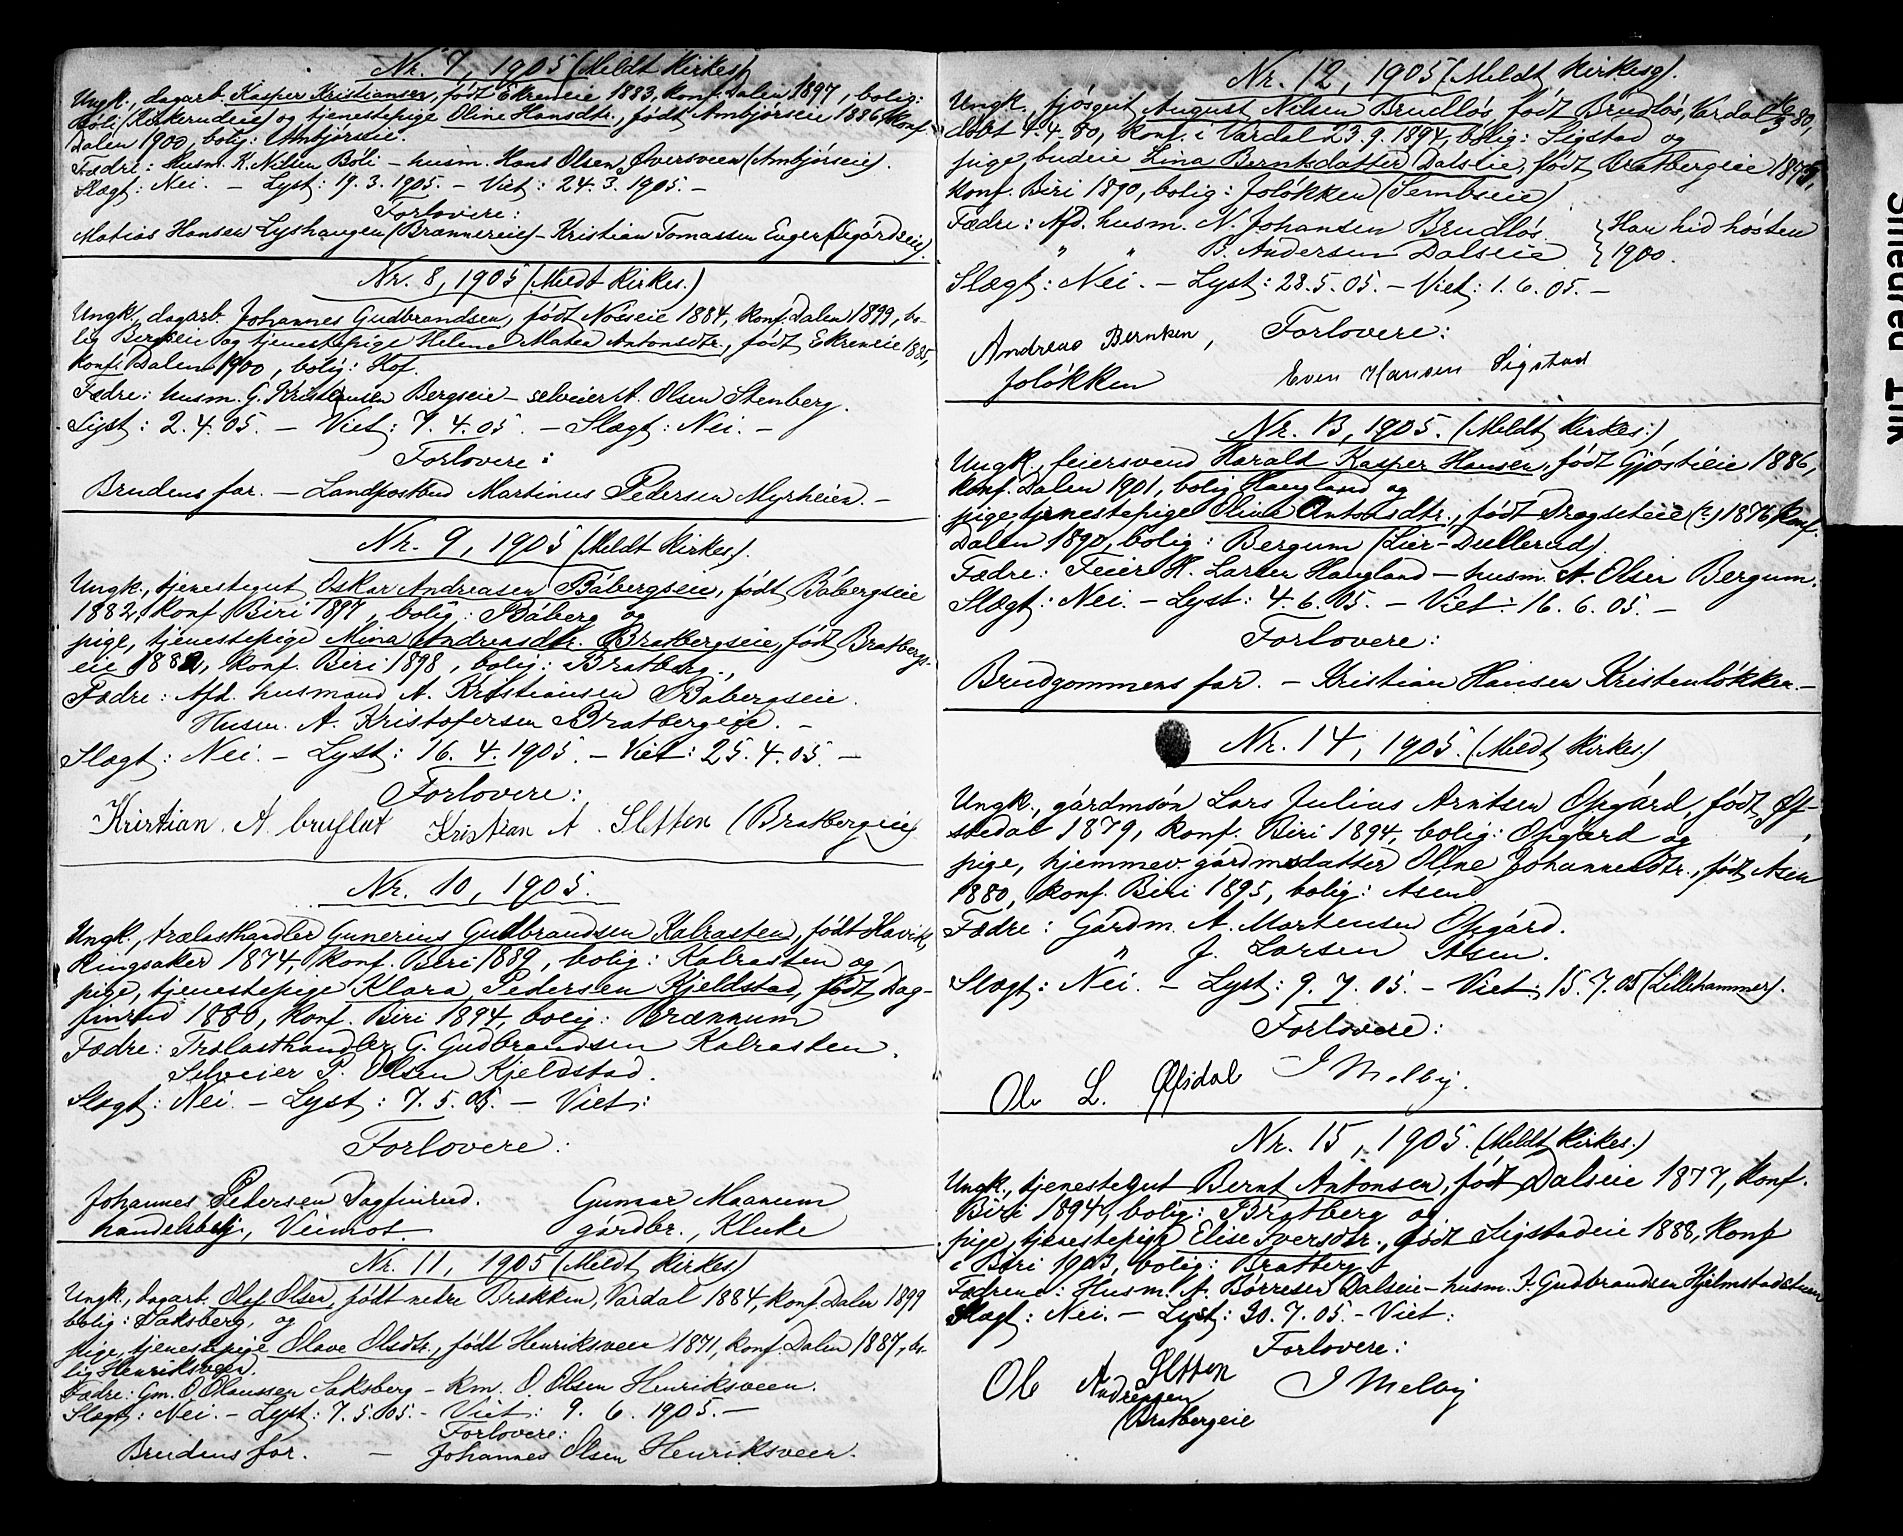 Nr. 7, 1905 (Meldt Kirkes.)
Ungk., dagarb. Kasper Kristiansen, født Ekreneie 1883, konf. Dalen 1897, bolig:
Böli (Kirkerudeie) og tjenestepige Oline Hansdtr., født Ambjörseie 1886, konf.
Dalen 1900, bolig: Ambjörseie
Fædre: Husm. K. Nilsen Böli – husm. Hans Olsen Øversveen (Ambjörseie).
Slægt: Nei. – Lyst: 19.3.1905. – Viet: 24.3.1905. –
Forlovere:
Matias Hansen Lyshaugen (Brænnereie) – Kristian Tomassen Enger
Nr. 8, 1905 (Meldt Kirkes.)
Ungk., dagarb. Johannes Gudbrandsen, født 1884, konf. Dalen 1899, bo-
lig Bergseie og tjenestepige Helene Matea Antonsdtr., født Ekreneie 1885,
konf. Dalen 1900, bolig: Hof.
Fædre: husm. G. Kristensen Bergseie – selveier A. Olsen Stenberg.
Lyst: 2.4.05. – Viet: 7.4.05. – Slægt: Nei. –
Forlovere:
Brudens far. – Landpostbud Martinus Pedersen Myrheien. –
Nr. 9, 1905 (Meldt Kirkes).
Ungk., tjenestegut Oskar Andreasen Båbergseie, født Båbergseie
1882, konf. Biri 1897, bolig: Båberg og
pige, tjenestepige Mina Andreasdtr. Bratbergseie, født Bratbergs-
eie 1882, konf. Biri 1898, bolig: Bratberg.
Fædre: Afd. husmand A. Kristiansen Båbergseie.
Husm. A. Kristofersen Bratbergeie. –
Slægt: Nei. – Lyst: 16.4.1905. – Viet: 25.4.05. –
Forlovere:
Kristian A. bruflat Kristian A. Sletten (Bratbergeie)
Nr. 10, 1905.
Ungk., trælasthandler Gunerius Gudbrandsen Kalrasten, født Havik,
Ringsaker 1874, konf. Biri 1889, bolig: Kalrasten og
pige, tjenestepige Klara Pedersen Kjeldstad, født Dag-
finrud 1880, konf. Biri 1894, bolig: Brænnum
Fædre: Trælasthandler G. Gudbrandsen Kalrasten.
Selveier P. Olsen Kjeldstad.
Slægt: Nei. – Lyst: 7.5.05. – Viet:
Forlovere:
Johannes Pedersen Dagfinrud. Gunnar Maanum
handelsbetj., Veimot. gårdbr., Kluke
Nr. 11, 1905 (Meldt Kirkes)
Ungk., dagarb. Olaf Olsen, født nedre Brækken, Vardal 1884, konf. Dalen 1899
bolig: Saksberg, og
pige, tjenestepige Olave Olsdtr., født Henriksveen 1871, konf. Dalen 1887, bo-
lig Henriksveen.
Fædre: Gm. O. Olaussen Saksberg – Km. O. Olsen Henriksveen.
Slægt: Nei. – Lyst: 7.5.05. – Viet: 9.6.1905. –
Forlovere:
Brudens far. – Johannes Olsen Henriksveen.
Nr. 12, 1905 (Meldt Kirkesg).
Ungk., fjösgut August Nilsen Brudlös, født Brudlös, Vardal 80,
døbt 4.4.80, konf. i Vardal 23.9.1894, bolig: Sigstad og
pige, budeie Lina Berntsdatter Dalseie, født Bratbergeie 1875,
konf. Biri 1890, bolig: Jolökken (Sembseie)
Fædre: Afd. husm. N. Johansen Brudlös. } Han hid hösten
" " B. Andersen Dalseie } 1900.
Slægt: Nei. – Lyst: 28.5.05. – Viet: 1.6.05. –
Forlovere:
Andreas Berntsen,
Jolökken Even Hansen Sigstad
Nr. 13, 1905. (Meldt Kirkes:)
Ungk., feiersvend Harald Kasper Hansen, født Gjöstieie 1886,
konf. Dalen 1901, bolig Haugland og
pige, tjenestepige Oline Antonsdtr., født Dragseteie (?) 1876, konf.
Dalen 1890, bolig: Bergum (Lier-Dullerud).
Fædre: Feier H. Larsen Haugland – husm. A. Olsen Bergum.
Slægt: Nei. – Lyst: 4.6.05. – Viet: 16.6.05. –
Forlovere:
Brudgommens far. – Kristian Hansen Kristenlökken. –
Nr. 14, 1905. (Meldt Kirkes.)
Ungk., gårdmsön Lars Julius Arntsen Opgård, født Øf-
stedal 1879, konf. Biri 1894, bolig: Opgård og
pige, hjemmev. gårdmsdatter Oline Johannesdtr., født Åsen
1880, konf. Biri 1895, bolig: Åsen.
Fædre: Gårdm. A. Martensen Opgård.
" J. Larsen Åsen.
Slægt: Nei. – Lyst: 9.7.05. – Viet: 15.7.05 (Lillehammer).
Forlovere:
Ole L. Øfsdal J Melby.
Nr. 15, 1905. (Meldt Kirkes.)
Ungk., tjenestegut Bernt Antonsen, født Dalseie 1877, konf.
Biri 1894, bolig: Bratberg og
pige, tjenestepige Elise Iversdtr., født Sigstadeie 1888, konf
i Biri 1903, bolig: Bratberg
Fædrene: Husm. A. Börresen Dalseie – husm. I. Gudbrandsen Hjelmstadstuen
Slægt: Nei. – Lyst: 30.7.05 – Viet:
Forlovere:
Ole Andreasen Sletten J Melby
Bratbergeie
Smeared Ink